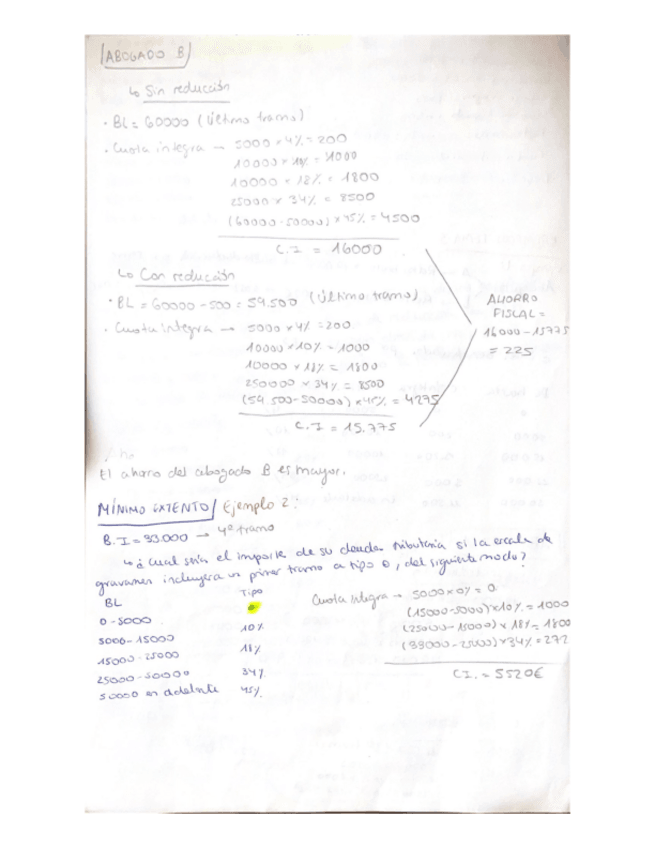 ABOGADO B
↳ Sin reducción
· BL = 60000 (Último tramo)
· Cuota íntegra → 5000 × 4% = 200
10000 × 10% = 1000
10000 × 18% = 1800
25000 × 34% = 8500
(60000 - 50000) × 45% = 4500
C.I = 16000
↳ Con reducción
· BL = 60000 - 500 = 59.500 (Último tramo)
· Cuota íntegra → 5000 × 4% = 200
10000 × 10% = 1000
10000 × 18% = 1800
250000 × 34% = 8500
(59.500 - 50000) × 45% = 4275
C.I = 15.775
AHORRO
FISCAL =
16000 - 15775
= 225
El ahorro del abogado B es mayor.
MÍNIMO EXTENTO / Ejemplo 2:
B.I = 33.000 → 4º tramo
↳ ¿Cual sería el importe de su deuda tributaria si la escala de
gravamen incluyera un primer tramo a tipo 0, del siguiente modo?
BL Tipo
0 - 5000 0
5000 - 15000 10%
15000 - 25000 18%
25000 - 50000 34%
50000 en adelante 45%
Cuota íntegra → 5000 × 0% = 0
(15000 - 5000) × 10% = 1000
(25000 - 15000) × 18% = 1800
(33000 - 25000) × 34% = 272
C.I. = 5520€